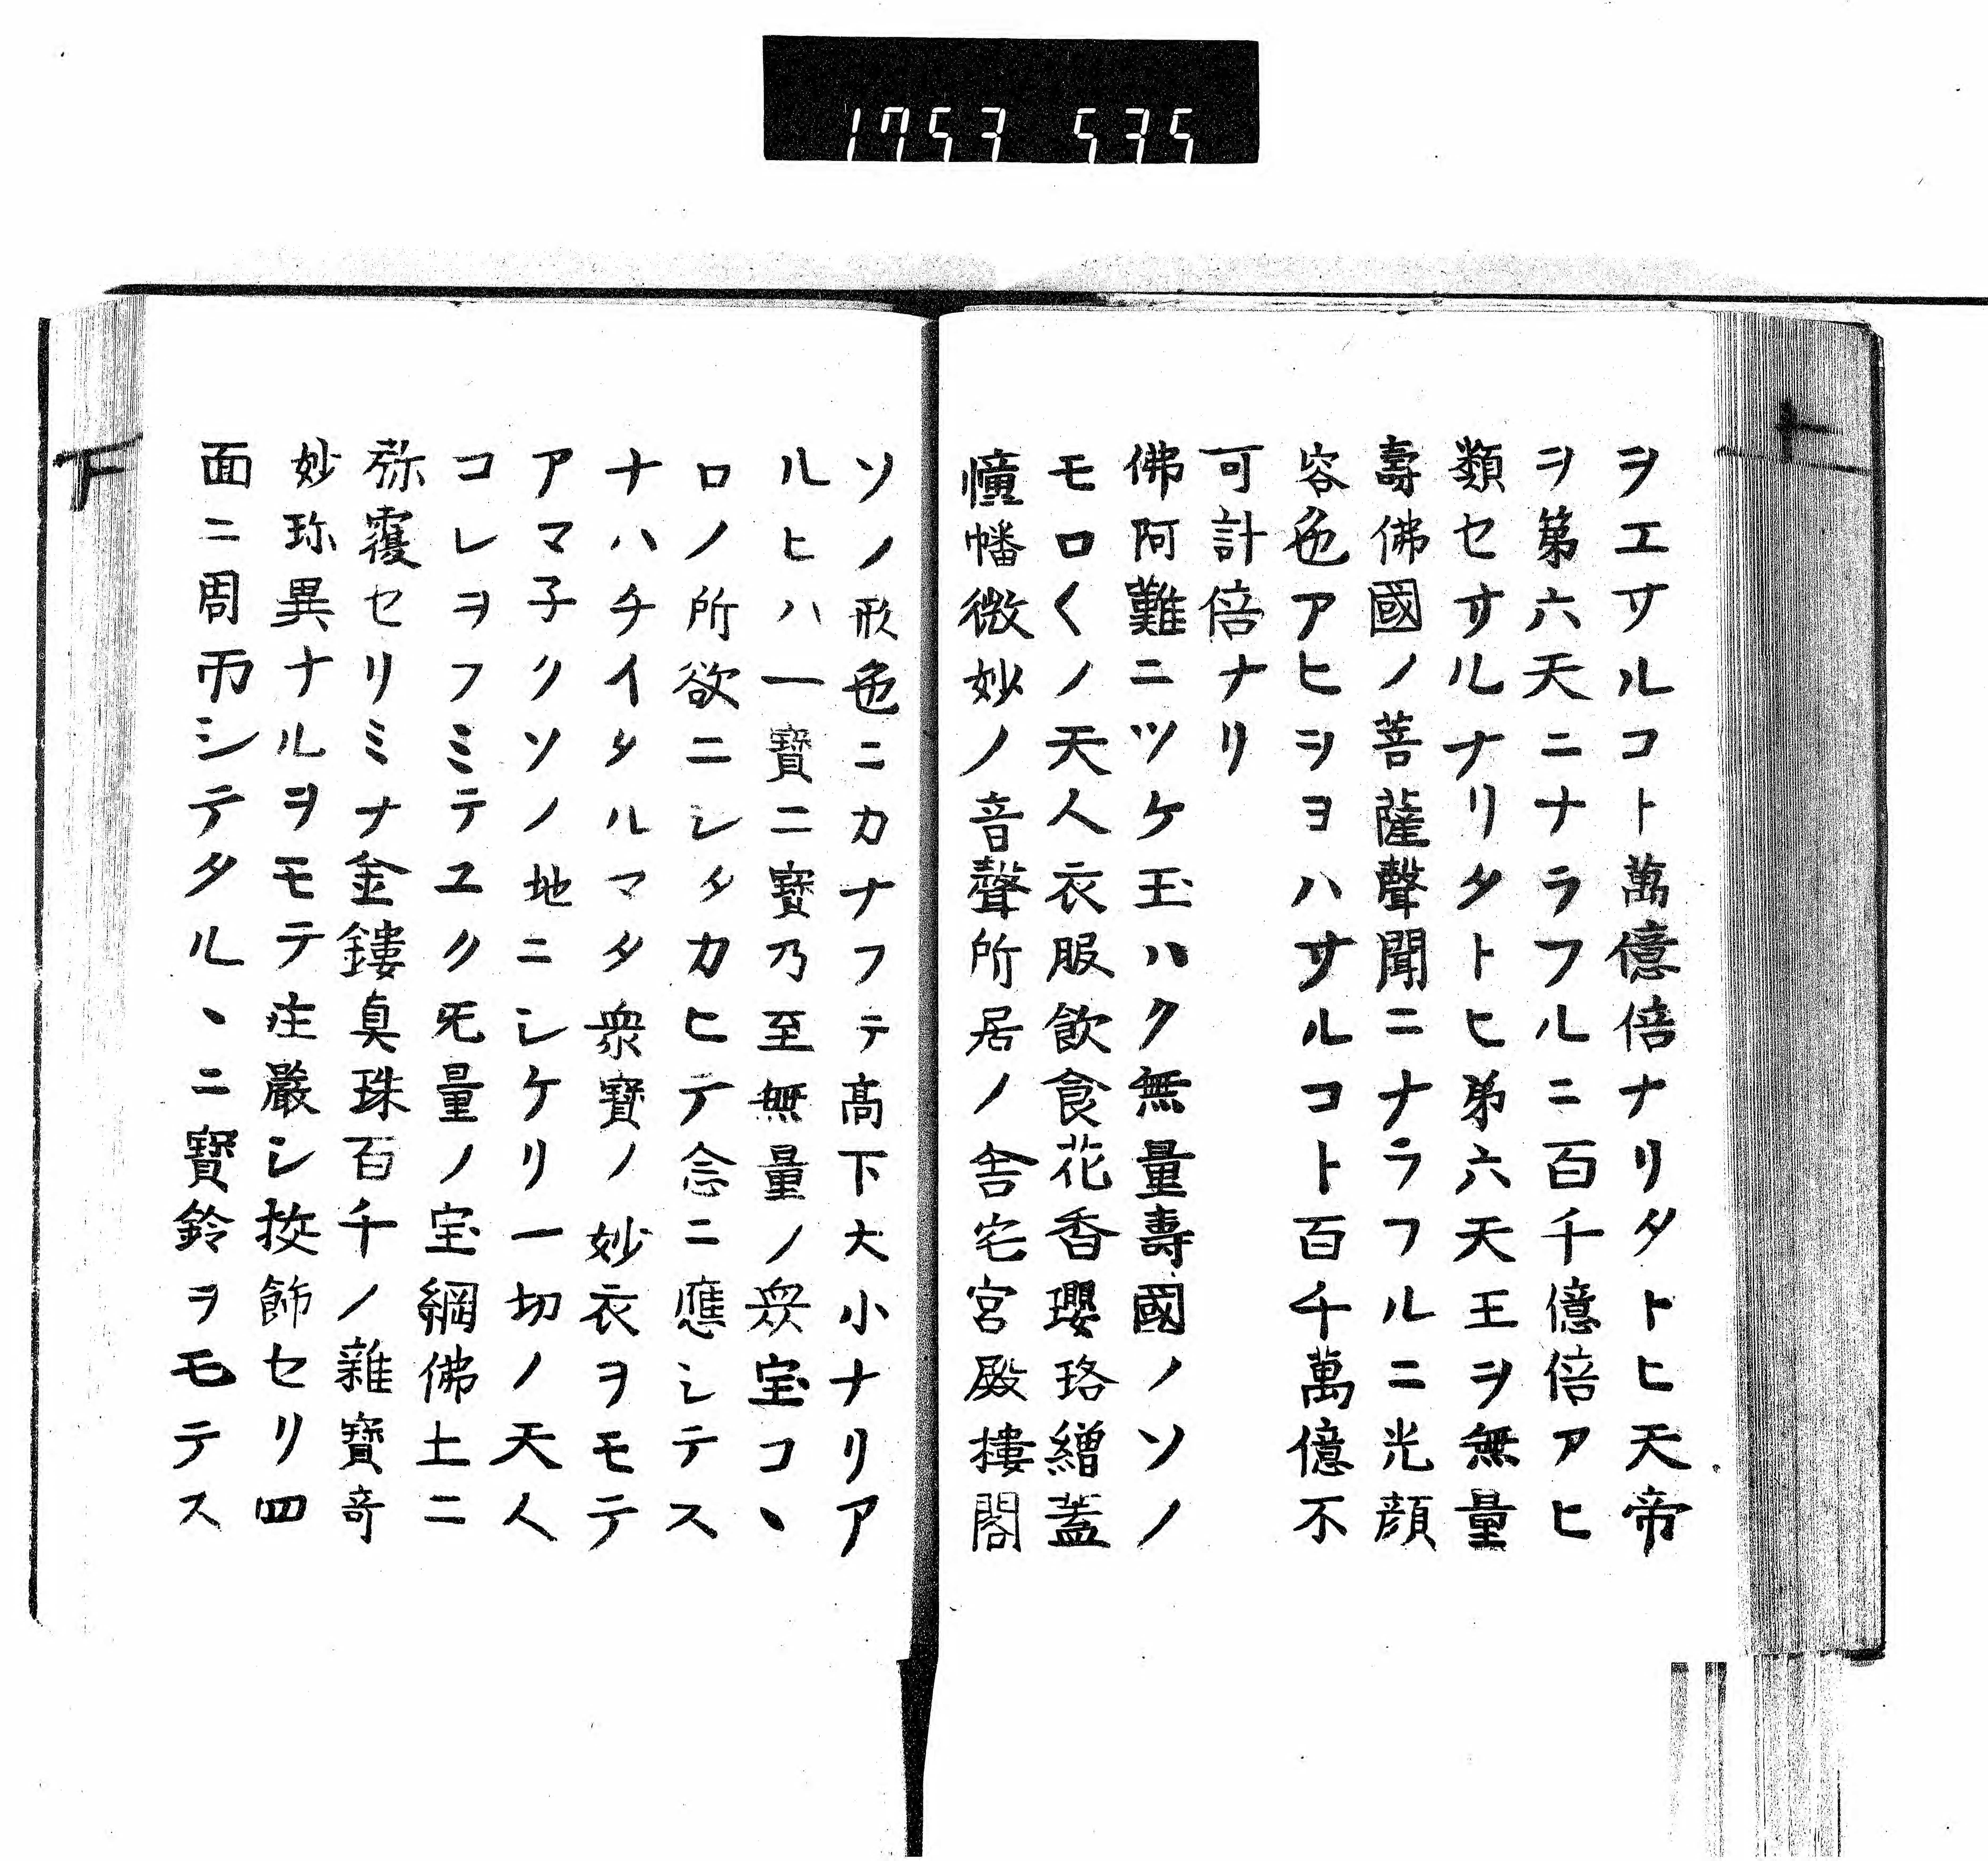 1753 535
ヲエサルコト萬億倍ナリタトヒ天帝
ヲ第六天ニナラフルニ百千億倍アヒ
類セサルナリタトヒ弟六天王ヲ無量
壽佛國ノ菩薩聲聞ニナラフルニ光顔
容色アヒヲヨハサルコト百千萬億不
可計倍ナリ
佛阿難ニツケ玉ハク無量壽國ノソノ
モロ〱ノ天人衣服飲食花香瓔珞繒蓋
幢幡微妙ノ音聲所居ノ舎宅宮殿樓閣
ソノ形色ニカナフテ高下大小ナリア
ルヒハ一寶ニ寶乃至無量ノ衆宝コヽ
ロノ所欲ニシタカヒテ念ニ應シテス
ナハチイタルマタ衆寶ノ妙衣ヲモテ
アマ子クソノ地ニシケリ一切ノ天人
コレヲフミテユク旡量ノ宝網佛土ニ
弥覆セリミナ金鏤真珠百千ノ雜寶奇
妙珎異ナルヲモテ庄嚴シ挍飾セリ四
面ニ周帀シテタルヽニ寶鈴ヲモテス